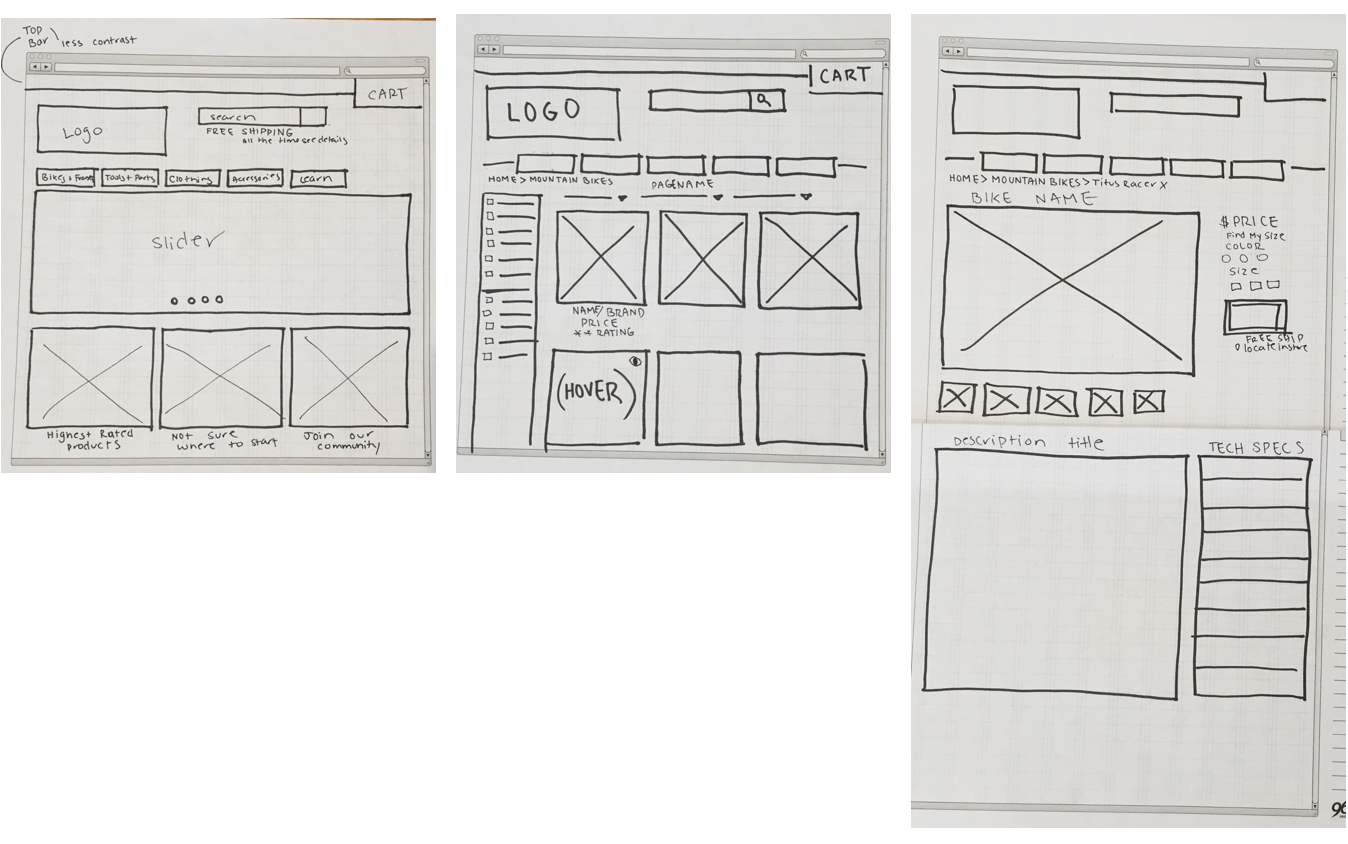 TOP
Bar
less contrast
CART
Logo
search
FREE SHIPPING
all the time see details
Bikes + Frames
Tools + Parts
Clothing
Accessories
Learn
Slider
Highest Rated
products
Not sure
where to start
Join our
community
CART
LOGO
HOME > MOUNTAIN BIKES
PAGENAME
NAME/BRAND
PRICE
** RATING
(HOVER)
HOME > MOUNTAIN BIKES > Titus Racer X
BIKE NAME
$ PRICE
Find My Size
COLOR
Size
FREE SHIP
locate instore
Description title
TECH SPECS